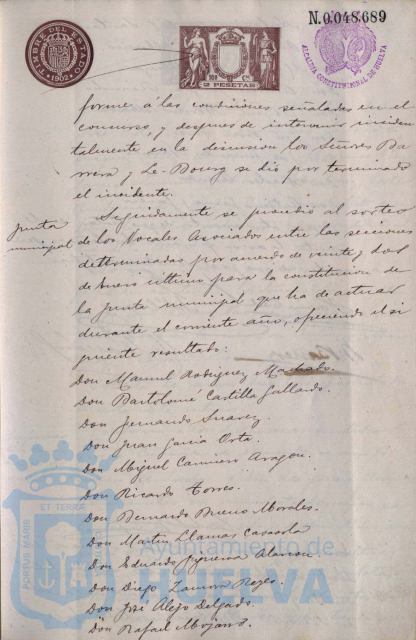 N.0.048.689
TIMBRE DEL ESTADO
1902
2 PESETAS
ALCALDIA CONSTITUCIONAL DE HUELVA
forme á las condiciones señaladas en el
concurso, y despues de intervenir inciden
talmente en la discusion los Señores Ba
rrera y Le-Bourg se dió por terminado
el incidente.
Junta
municipal
Seguidamente se procedió al sorteo
de los Vocales Asociados entre las secciones
determinadas por acuerdo de veinte y dos
de Enero ultimo para la constitucion de
la junta municipal que ha de actuar
durante el corriente año, ofreciendo el si
guiente resultado:
Don Manuel Rodriguez Machado.
Don Bartolomé Castilla Gallardo.
Don Fernando Suarez.
Don Juan Garcia Orta.
Don Miguel Carnicero Aragon.
Don Ricardo Torres.
Don Bernardo Bueno Morales.
Don Martin Llamas
Don Eduardo Figueroa Alarcon.
Don Diego Zamora Reyes.
Don José Alejo Delgado.
Don Rafael Mojarro.
PORTUS MARIS ET TERRA
Ayuntamiento de
HUELVA